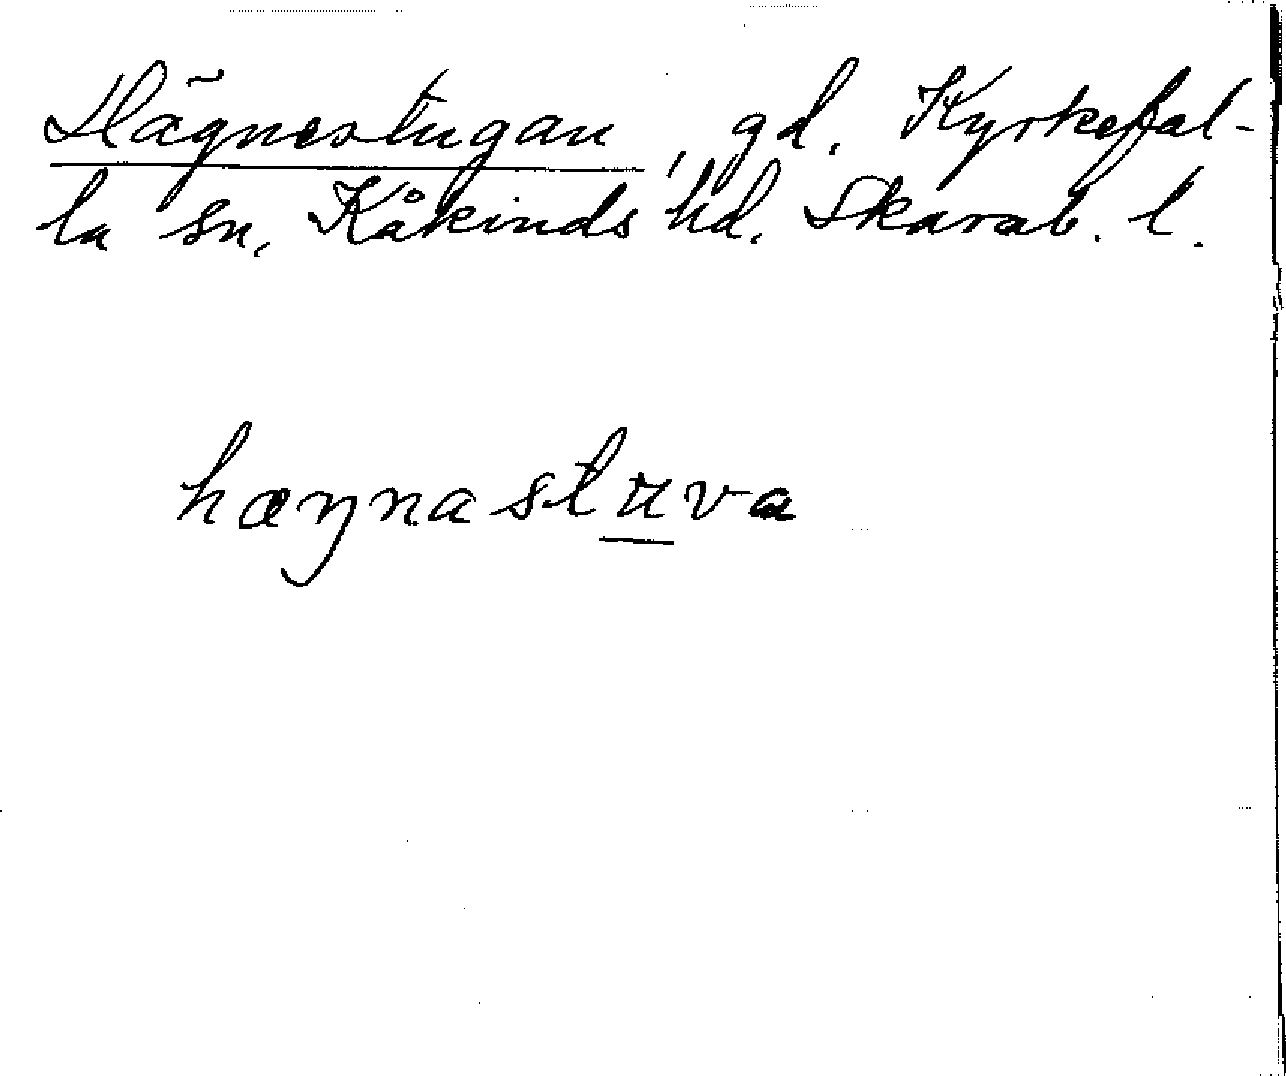 Hägnestugan, gd. Kyrkefal-
la sn, Kåkinds hd. Skarab. l.
hæŋnastuva